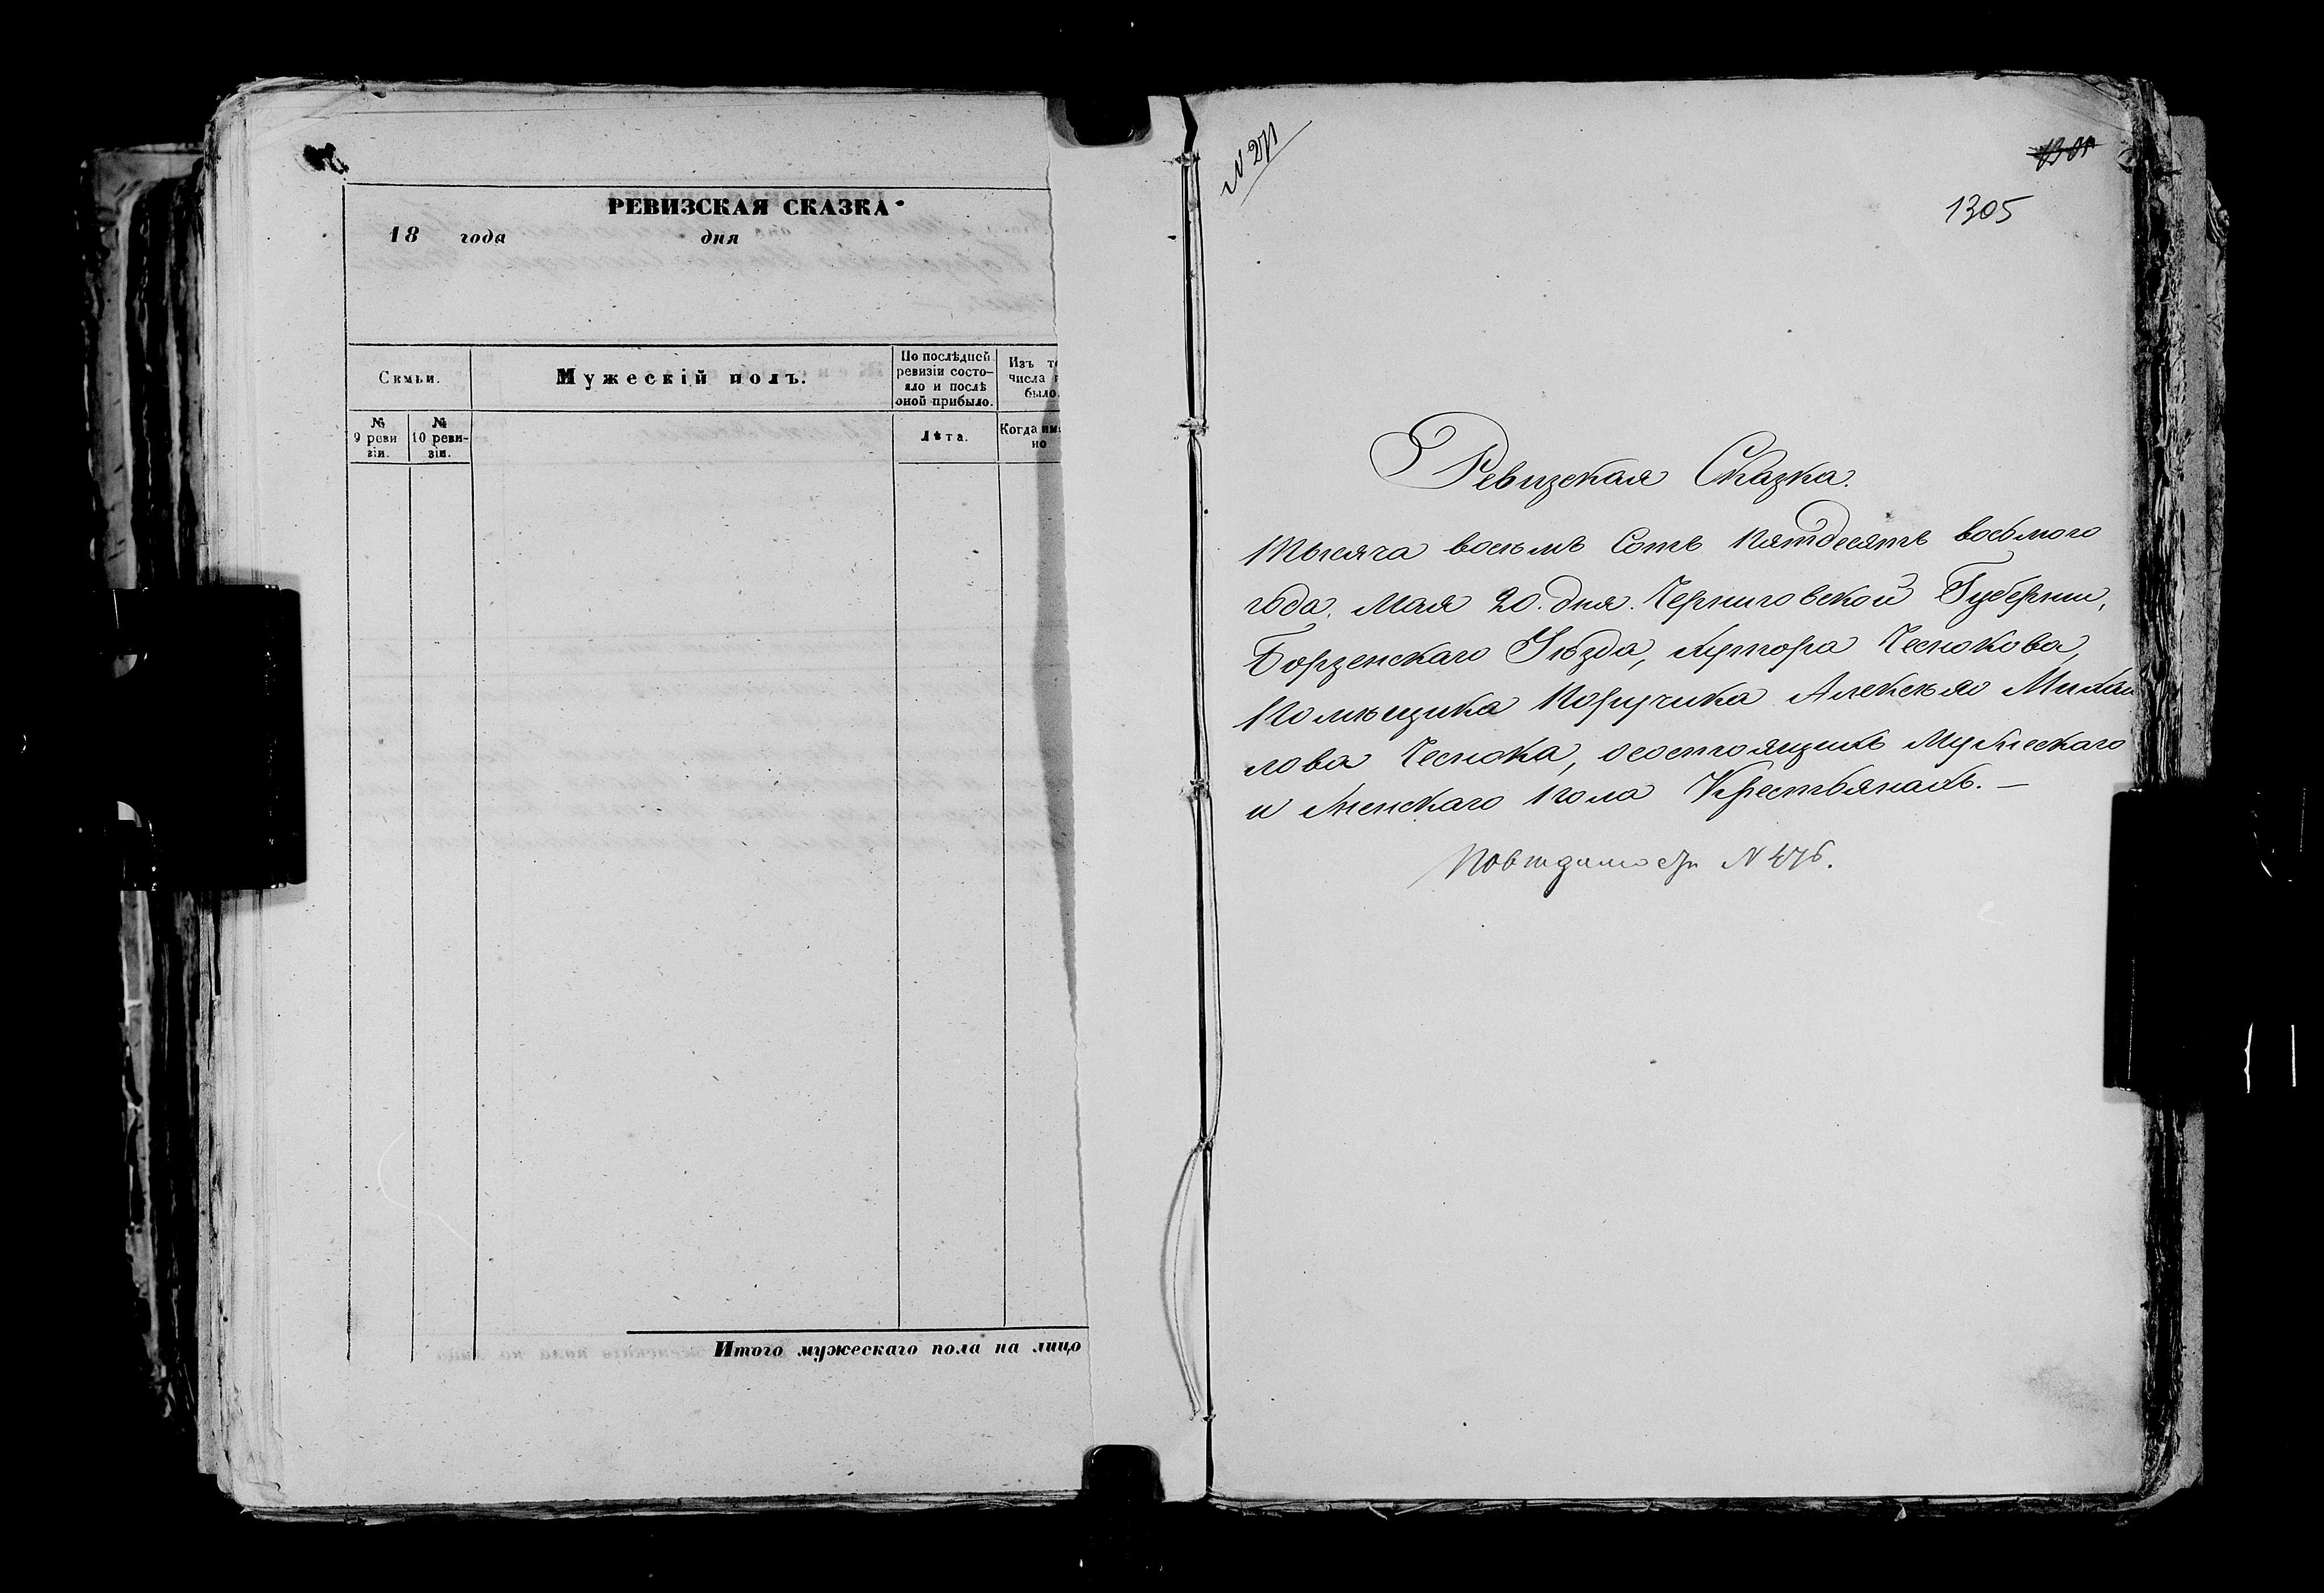 РЕВИЗСКАЯ СКАЗКА
18 года дня
Семьи.
Мужескій полъ.
По послѣдней
ревизіи состо-
яло и послѣ
оной прибыло.
Изъ
числа
было.
№
9 реви
зіи.
№
10 реви-
зіи.
Лѣта.
Когда
но
Итого мужескаго пола на лицо
N 271
1305
Ревизская Сказка.
Тысяча восемь Сотъ Пятдесятъ восьмого
года. Мая 20. дня. Черниговской Губерніи,
Борзенскаго Уѣзда, хутора Чеснокова,
Помѣщика Поручика Алексѣя Михай
лова Чеснока, о состоящихъ Мужескаго
и Женскаго пола Крестьянахъ. —
N 476.